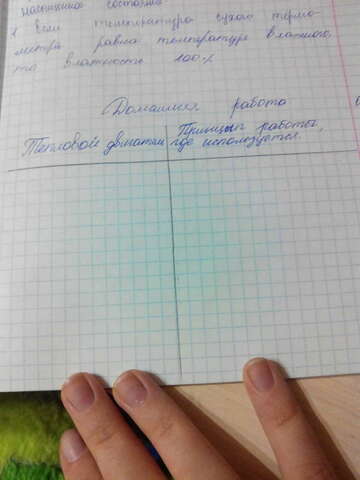 насыщения состояния
Я если температура сухого термо-
метра равна температуре влажного,
то влажность 100%
Домашняя работа
Тепловой двигатель
Принцып работы,
где используется.